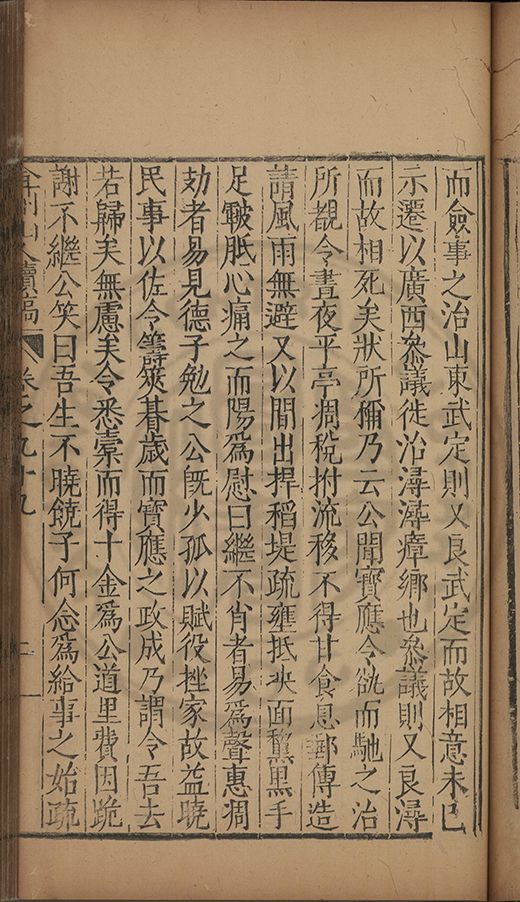 而僉事之治山東武定則又良武定而故相意未已
示遷以廣西叅議徙治潯潯瘴鄉也叅議則又良潯
而故相死矣狀所稱乃云公聞寶應令就而馳之治
所覩令晝夜平亭凋稅拊流移不得甘食息郵傳造
請風雨無避又以間出捍稻堤疏壅抵决面黧黑手
足皸胝心痛之而陽為慰曰繼不肖者易為聲惠凋
劾者易見德子勉之公旣少孤以賦役挫家故益曉
民事以佐令籌筴朞歲而寶應之政成乃謂令吾去
若歸矣無慮矣令悉橐而得十金為公道里費因跪
謝不繼公笑曰吾生不曉饒子何念為給事之始疏
弇州山人續稿
卷之九十九
二